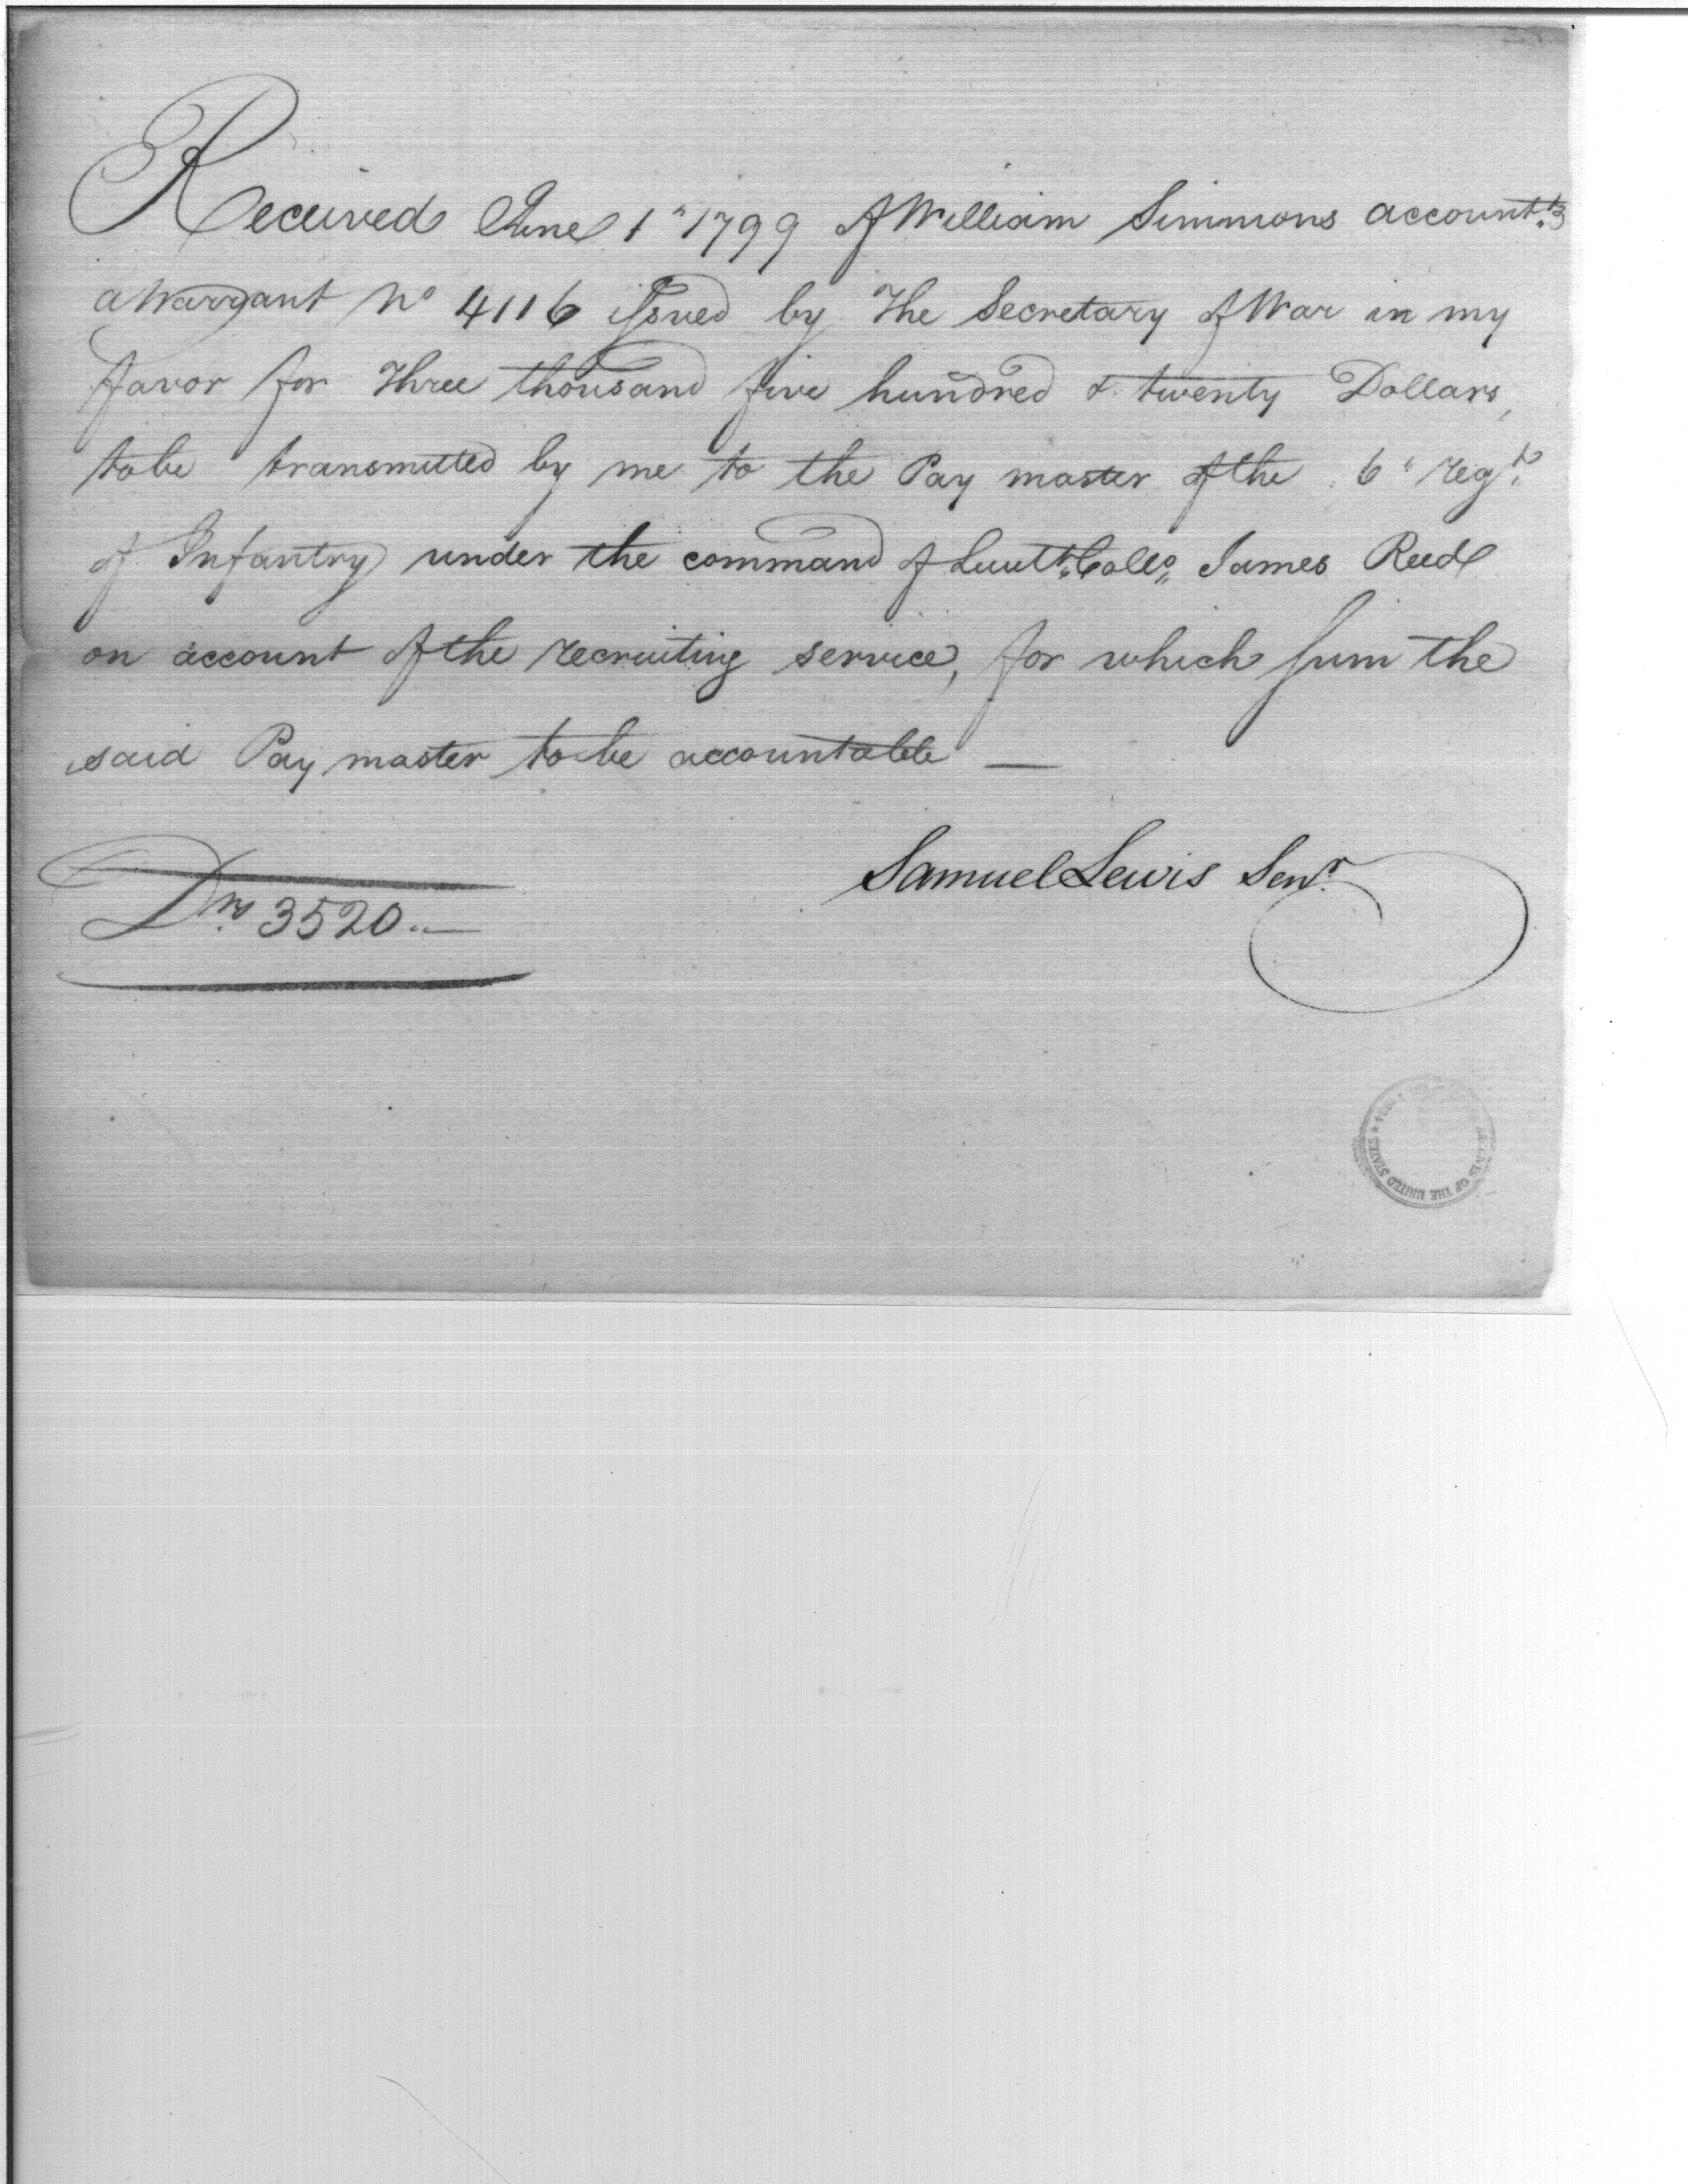 Received June 1" 1799 of William Simmons accountt.
a Warrant No 4116 issued by The Secretary of War in my
favor for Three thousand five hundred & twenty Dollars,
to be transmitted by me to the Pay master of the 6" regt.
of Infantry under the command of Lieutt. Collo. James Reed
on account of the recruiting service, for which sum the
said Pay master to be accountable —
Samuel Lewis Senr.
Drs. 3520..—
OF THE UNITED STATES